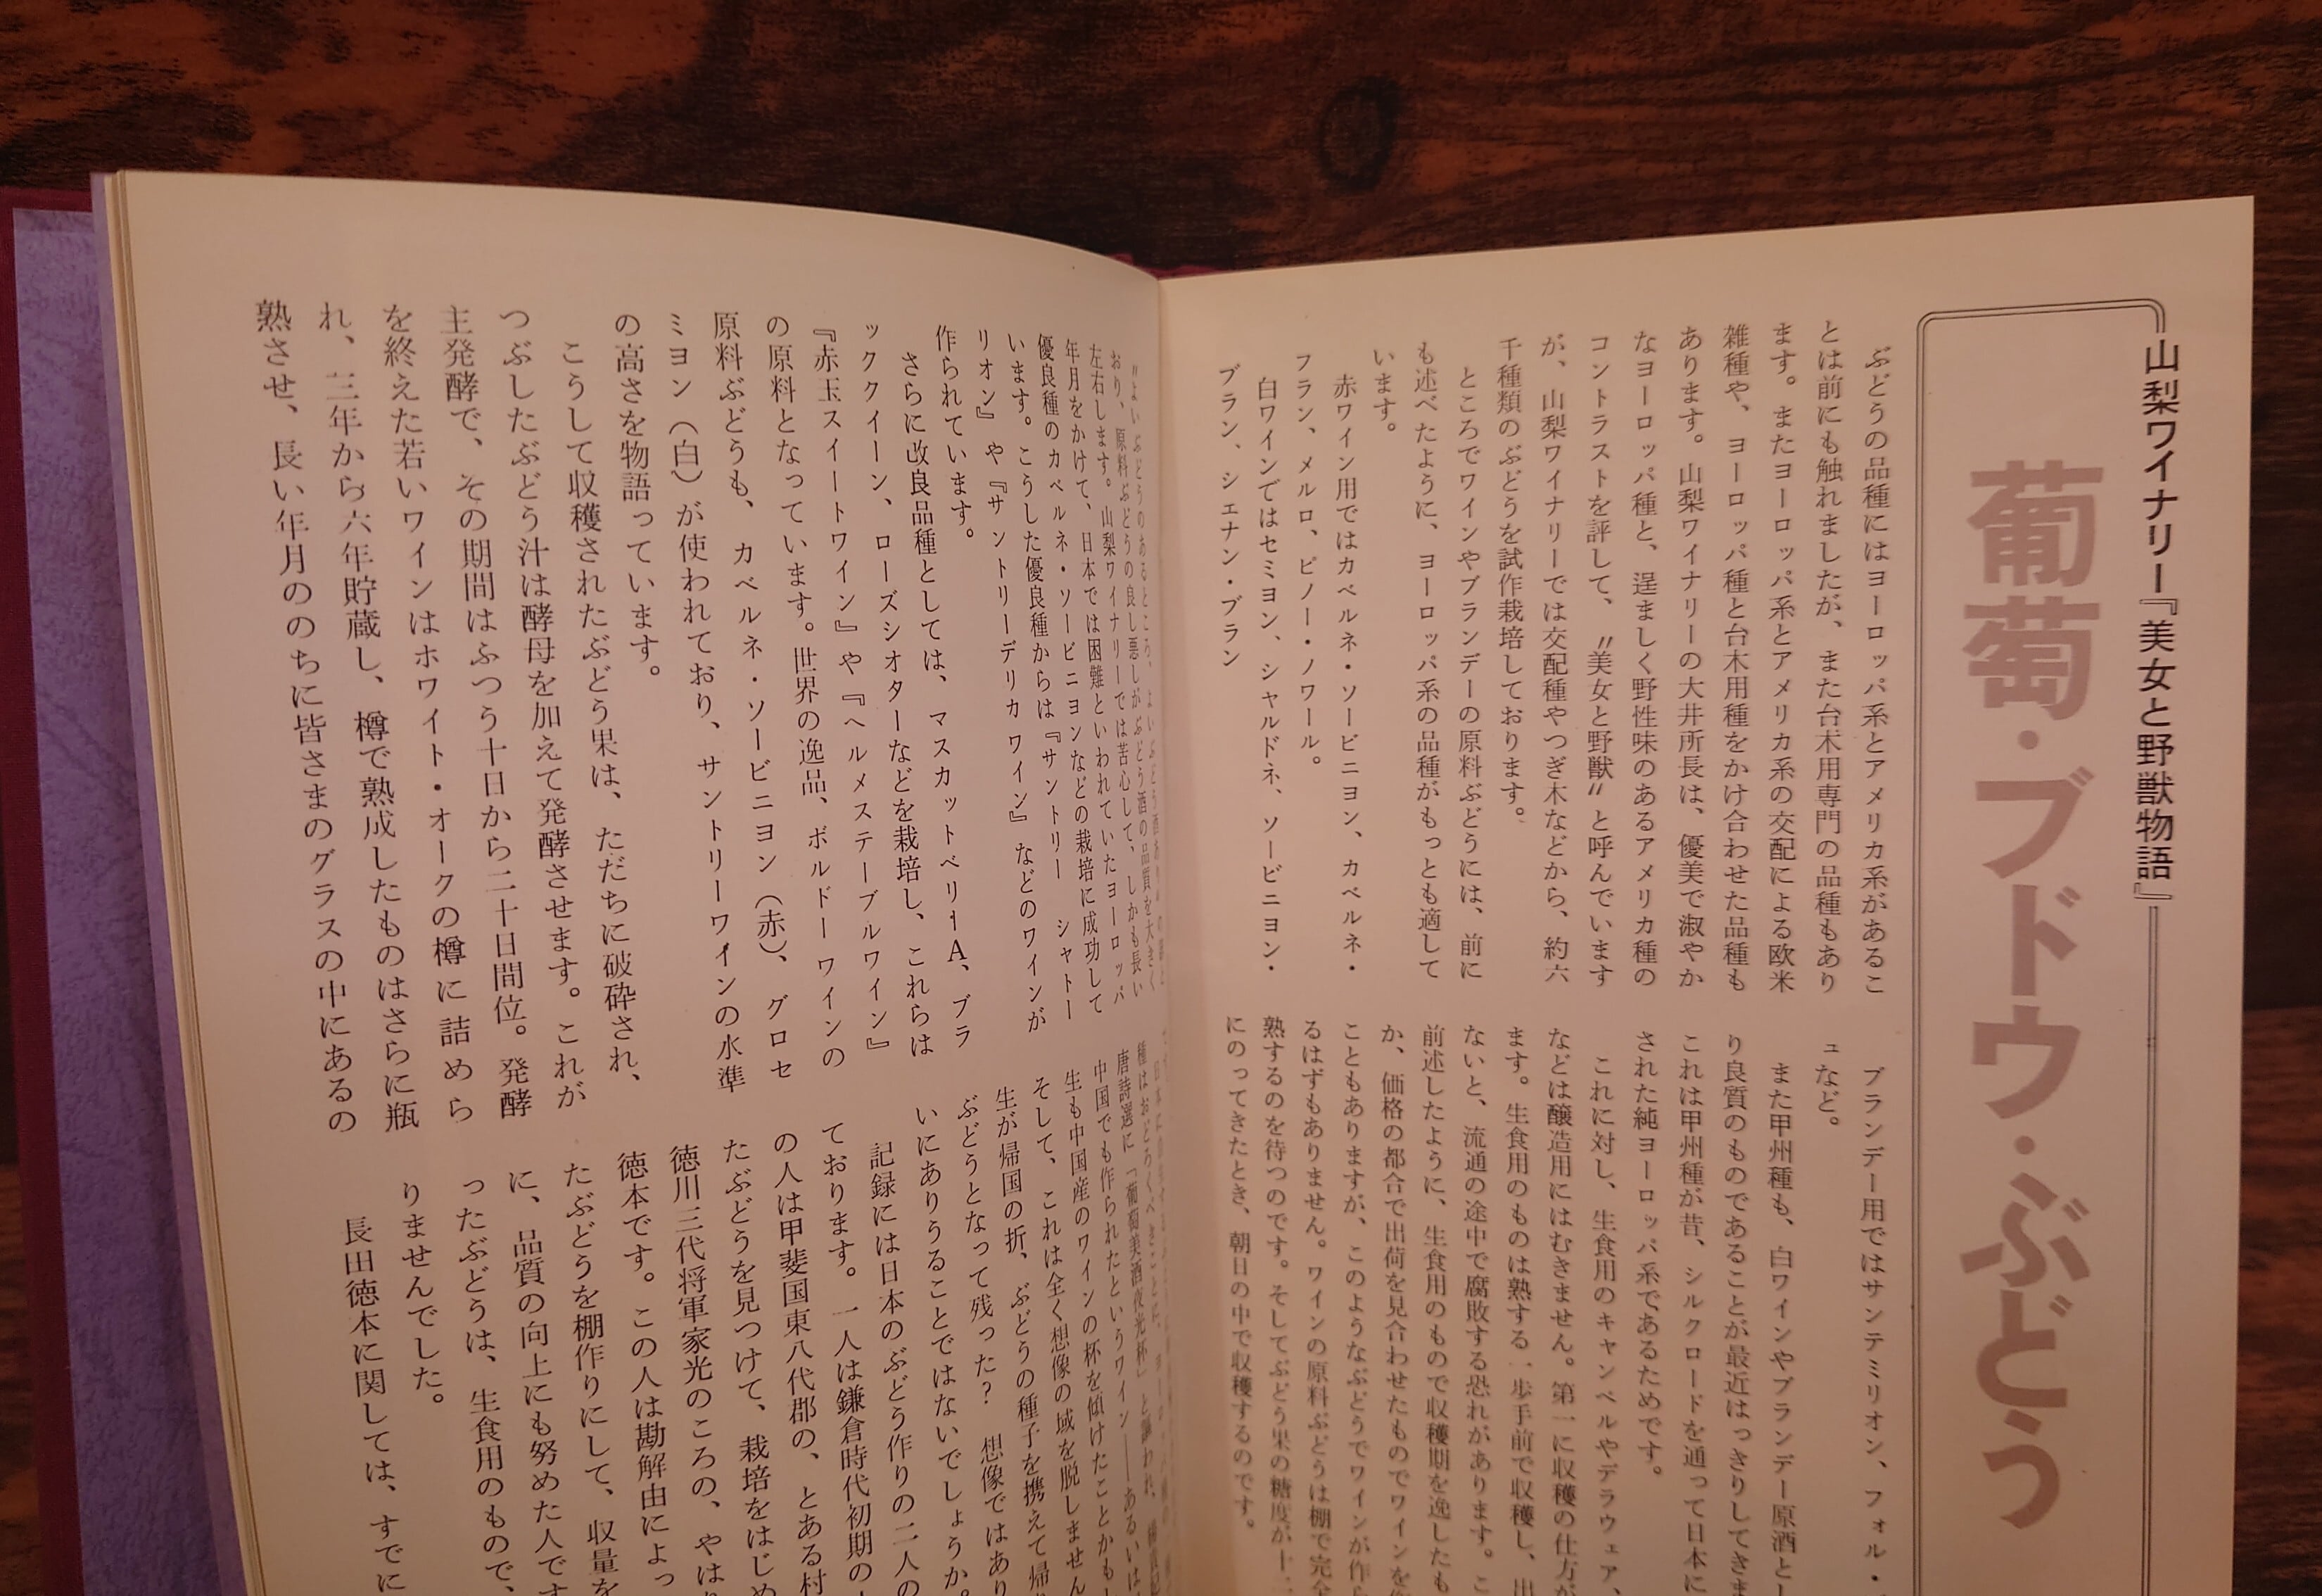 山梨ワイナリー『美女と野獣物語』
葡萄・ブドウ・ぶどう
ぶどうの品種にはヨーロッパ系とアメリカ系があるこ
とは前にも触れましたが、また台木用専門の品種もあり
ます。またヨーロッパ系とアメリカ系の交配による欧米
雑種や、ヨーロッパ種と台木用種をかけ合わせた品種も
あります。山梨ワイナリーの大井所長は、優美で淑やか
なヨーロッパ種と、逞ましく野性味のあるアメリカ種の
コントラストを評して、〝美女と野獣〟と呼んでいます
が、山梨ワイナリーでは交配種やつぎ木などから、約六
千種類のぶどうを試作栽培しております。
ところでワインやブランデーの原料ぶどうには、前に
も述べたように、ヨーロッパ系の品種がもっとも適して
います。
赤ワイン用ではカベルネ・ソービニヨン、カベルネ・
フラン、メルロ、ピノー・ノワール。
白ワインではセミヨン、シャルドネ、ソービニヨン・
ブラン、シエナン・ブラン
ブランデー用ではサンテミリオン、フォル・
ュなど。
また甲州種も、白ワインやブランデー原酒とし
り良質のものであることが最近はっきりしてきま
これは甲州種が昔、シルクロードを通って日本に
された純ヨーロッパ系であるためです。
これに対し、生食用のキャンベルやデラウェア、
などは醸造用にはむきません。第一に収穫の仕方が
ます。生食用のものは熟する一歩手前で収穫し、出
ないと、流通の途中で腐敗する恐れがあります。こ
前述したように、生食用のもので収穫期を逸したも
か、価格の都合で出荷を見合わせたものでワインを
こともありますが、このようなぶどうでワインが作ら
るはずもありません。ワインの原料ぶどうは棚で完全
熟するのを待つのです。そしてぶどう果の糖度が十二
にのってきたとき、朝日の中で収穫するのです。
〝よいぶどうのあるところ、よいぶどう酒あり
おり、原料ぶどうの良し悪しがぶどう酒の品質を大きく
左右します。山梨ワイナリーでは苦心して、しかも長い
年月をかけて、日本では困難といわれていたヨーロッパ
優良種のカベルネ・ソービニヨンなどの栽培に成功して
います。こうした優良種からは『サントリー シャトー
リオン』や『サントリーデリカワイン』などのワインが
作られています。
さらに改良品種としては、マスカットベリーA、ブラ
ッククイーン、ローズシオターなどを栽培し、これらは
『赤玉スイートワイン』や『ヘルメステーブルワイン』
の原料となっています。世界の逸品、ボルドーワインの
原料ぶどうも、カベルネ・ソービニヨン（赤）、グロセ
ミヨン（白）が使われており、サントリーワインの水準
の高さを物語っています。
こうして収穫されたぶどう果は、ただちに破砕され、
つぶしたぶどう汁は酵母を加えて発酵させます。これが
主発酵で、その期間はふつう十日から二十日間位。発酵
を終えた若いワインはホワイト・オークの樽に詰めら
れ、三年から六年貯蔵し、樽で熟成したものはさらに瓶
熟させ、長い年月ののちに皆さまのグラスの中にあるの
種はおどろくべきことに、
唐詩選に「葡萄美酒夜光杯」と謳われ、
中国でも作られたというワイン――あるいは
生も中国産のワインの杯を傾けたことかも
そして、これは全く想像の域を脱しません
生が帰国の折、ぶどうの種子を携えて帰
ぶどうとなって残った？ 想像ではあり
いにありうることではないでしょうか。
記録には日本のぶどう作りの二人の
ております。一人は鎌倉時代初期の
の人は甲斐国東八代郡の、とある村
たぶどうを見つけて、栽培をはじめ
徳川三代将軍家光のころの、やは
徳本です。この人は勘解由によっ
たぶどうを棚作りにして、収量を
に、品質の向上にも努めた人です
ったぶどうは、生食用のもので、
りませんでした。
長田徳本に関しては、すでに